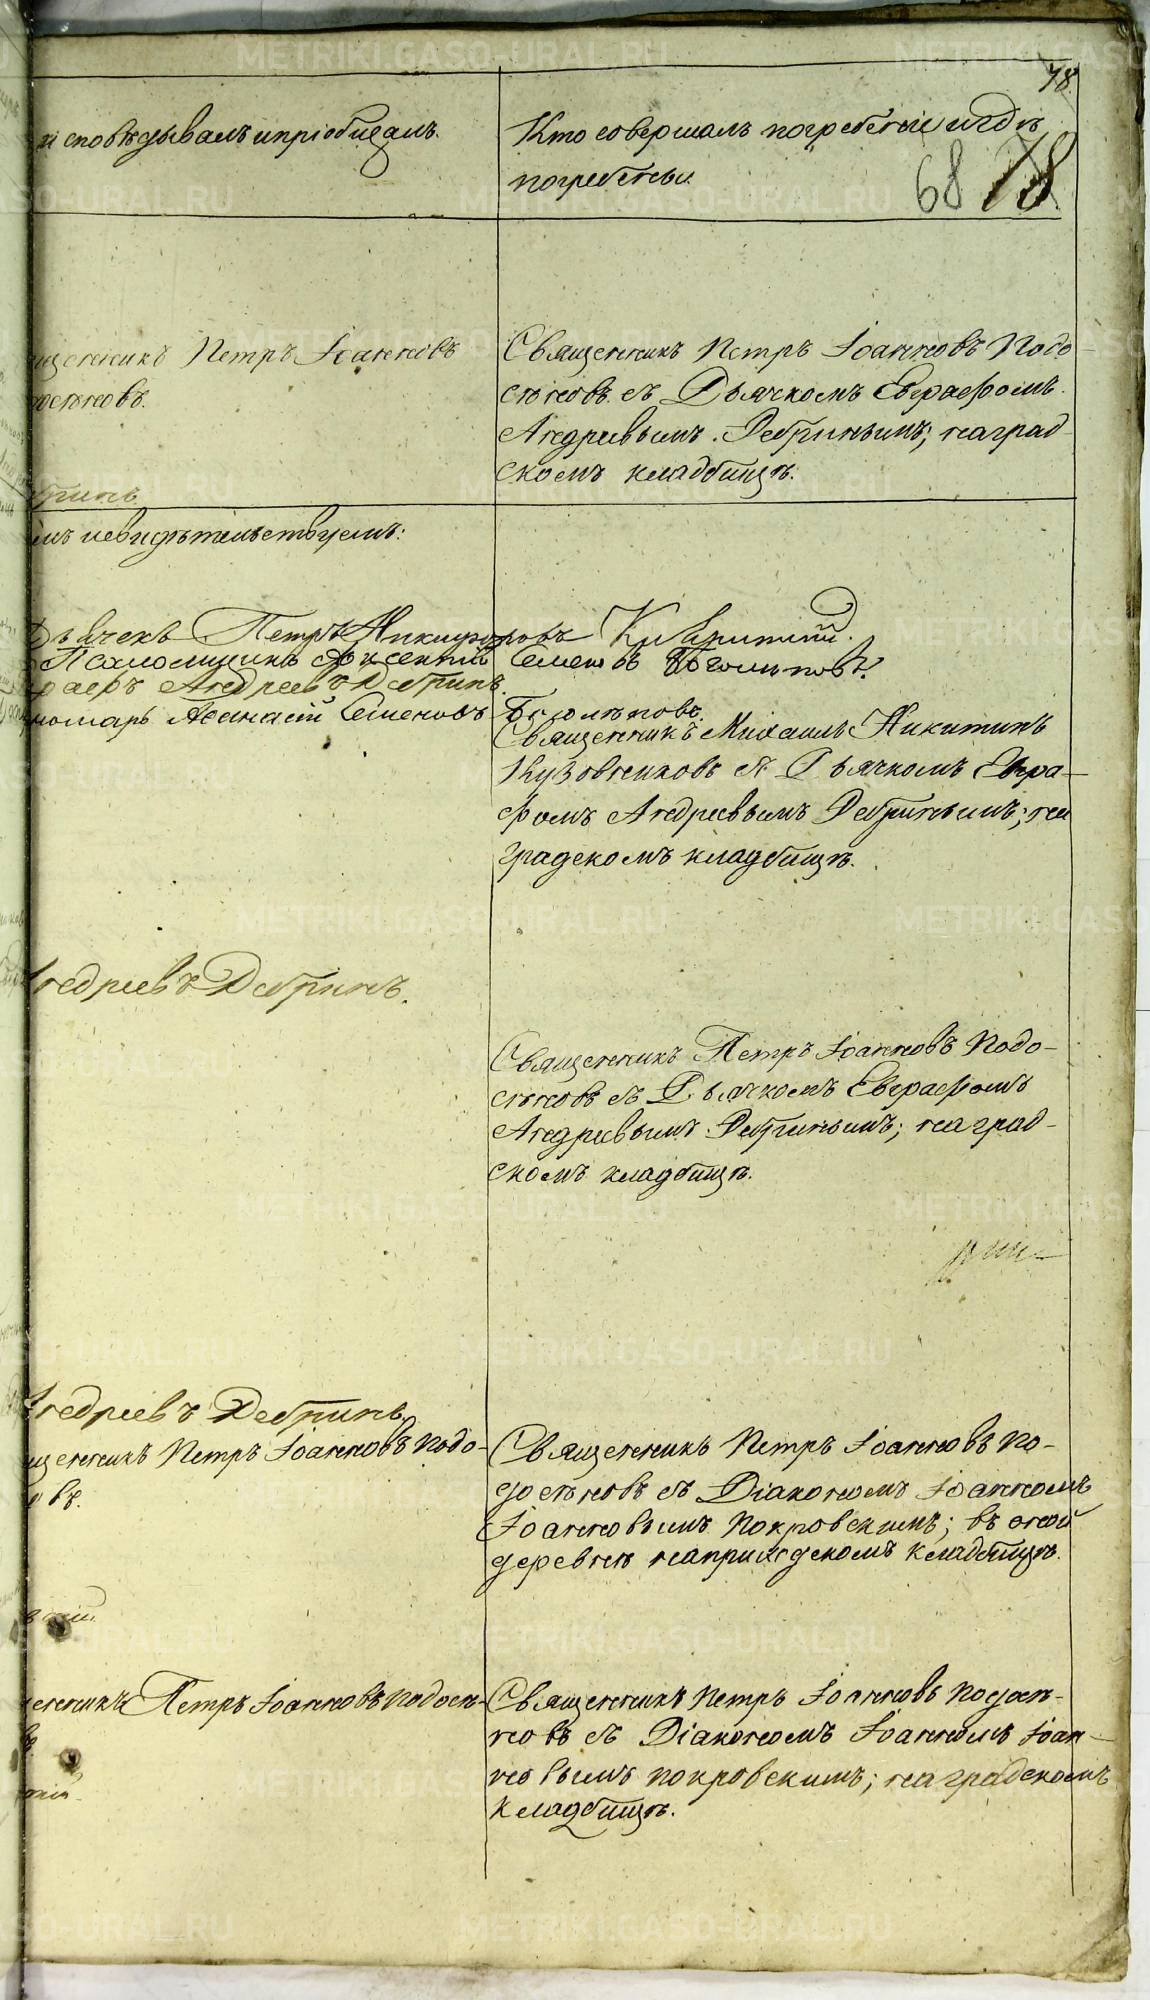 78.
исповѣдывалъ и пріобщалъ.
Кто совершалъ погребеніе и гдѣ
погребены.
68 78.
Петръ Іоанновъ
Священникъ Петръ Іоанновъ Подо-
сѣновъ съ Дьячкомъ Евграфомъ
Андреевымъ Дебринымъ; на град-
скомъ кладбищѣ.
свидѣтельствуемъ:
Дьячекъ Петръ Никифоровъ
Псаломщикъ Авксентій Семеновъ
Андреевъ Дебринъ.
Аѳанасій Семеновъ
Священникъ Михаилъ Никитинъ
Кузовниковъ съ Дьячкомъ Евгра-
фомъ Андреевымъ Дебринымъ; на
градскомъ кладбищѣ.
Андреевъ Дебринъ.
Священникъ Петръ Іоанновъ Подо-
сѣновъ съ Дьячкомъ Евграфомъ
Андреевымъ Дебринымъ; на град-
скомъ кладбищѣ.
Андреевъ Дебринъ.
Петръ Іоанновъ Подо-
Священникъ Петръ Іоанновъ По-
досѣновъ съ Діакономъ Іоанномъ
Іоанновымъ Покровскимъ; въ оной
деревнѣ на приходскомъ кладбищѣ.
Петръ Іоанновъ Подосѣ-
Священникъ Петръ Іоанновъ Подосѣ-
новъ съ Діакономъ Іоанномъ Іоан-
новымъ Покровскимъ; на градскомъ
кладбищѣ.
METRIKI.GASO-URAL.RU